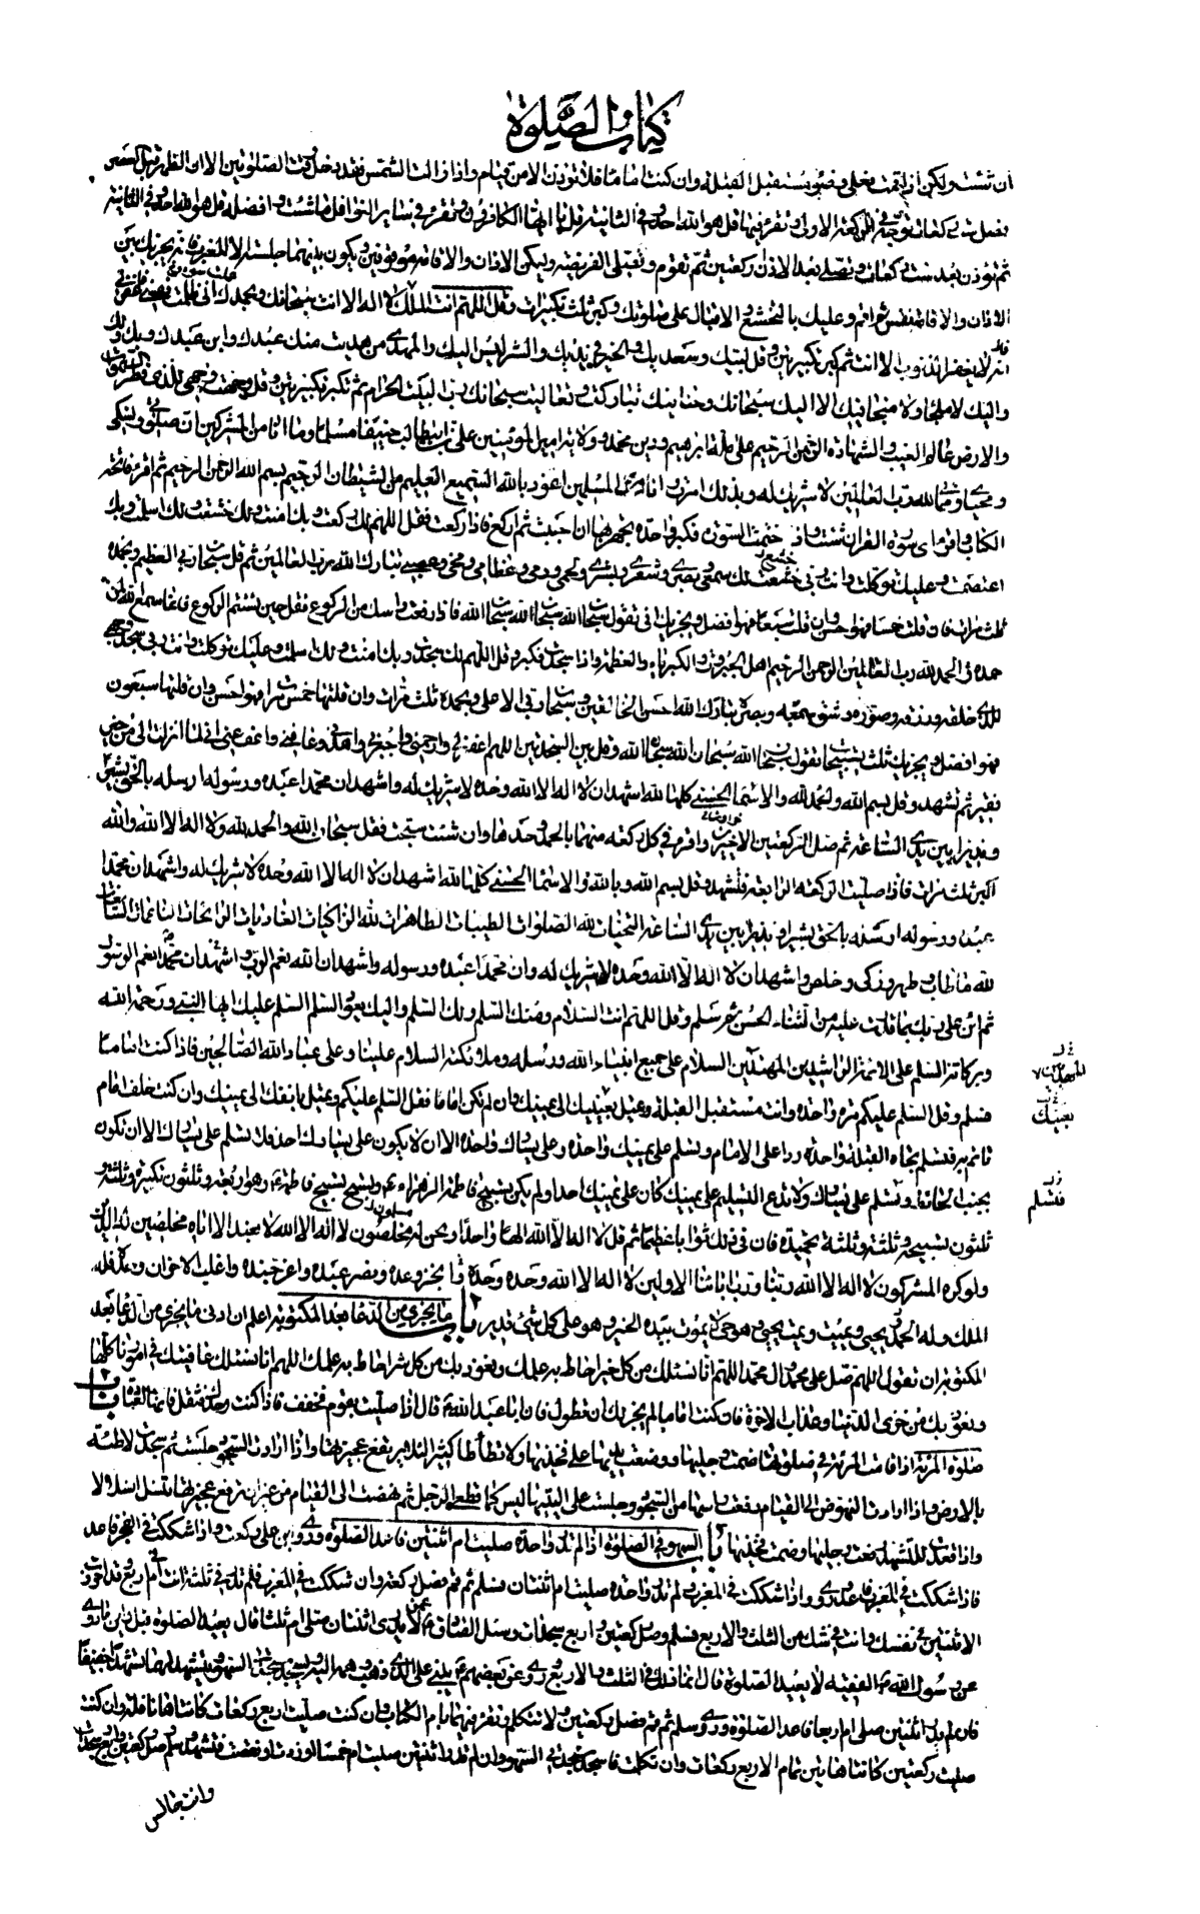 كتاب الصلوة
ان شئت ولكن اذا اقمت فعلى وضوء مستقبل القبلة وان كنت اماما فلا تؤذن الا من قيام واذا زالت الشمس فقد دخل وقت الصلوتين الا ان الظهر قبل العصر
ثم تؤذن بعد ست ركعات وتصلى بعد الاذان ركعتين ثم تقوم وتصلى الفريضة وليكن الاذان والاقامة موقوفين ويكون بينهما جلسة الا المغرب فانه يجزيك بين
الاذان والاقامة نفس وعليك بالتخشع والاقبال على صلوتك وكبر ثلث تكبيرات وقل اللهم انت الملك لا اله الا انت سبحانك وبحمدك انى ظلمت نفسى
انه لا يغفر الذنوب الا انت ثم كبر تكبيرتين وقل لبيك وسعديك والخير فى يديك والشر ليس اليك والمهدى من هديت عبدك وابن عبدك
واليك لا ملجأ ولا منجا منك الا اليك سبحانك وحنانيك تباركت وتعاليت سبحانك رب البيت الحرام ثم تكبر تكبيرتين وقل وجهت وجهى للذى فطر
والارض عالم الغيب والشهادة الرحمن الرحيم على ملة ابرهيم ودين محمد وولاية امير المؤمنين على بن ابيطالب حنيفا مسلما وما انا من المشركين ان صلوتى ونسكى
ومحياى ومماتى لله رب العالمين لا شريك له وبذلك امرت وانا من المسلمين اعوذ بالله السميع العليم من الشيطان الرجيم بسم الله الرحمن الرحيم ثم اقرء فاتحة
الكتاب واى سورة القران شئت ختمت السورة فكبر واحدة تجهر بها ان احببت ثم اركع فاذا ركعت فقل اللهم لك ركعت وبك امنت ولك خشعت ولك اسلمت وبك
اعتصمت وعليك توكلت وانت ربى خشعت لك سمعى وبصرى وشعرى وبشرى ولحمى ودمى وعظامى ومخى وعصبى تبارك الله رب العالمين ثم قل سبحان ربى العظيم وبحمده
ثلث مرات فان قلت خمسا فهو احسن وان قلت سبعا فهو افضل ويجزيك ان تقول سبحان الله سبحان الله سبحان الله فاذا رفعت راسك من الركوع فقل حين تستتم الركوع قائما سمع الله لمن
حمده الحمد لله رب العالمين الرحمن الرحيم اهل الجبروت والكبرياء والعظمة واذا سجدت فكبر وقل اللهم لك سجدت وبك امنت ولك اسلمت وعليك توكلت وانت ربى سجد وجهى
للذى خلقه وصوره وشق سمعه وبصره تبارك الله احسن الخالقين سبحان ربى الاعلى وبحمده ثلث مرات وان قلتها خمس مرات فهو احسن وان قلتها سبعا
فهو افضل ويجزيك ثلث تسبيحات تقول سبحان الله سبحان الله سبحان الله وقل بين السجدتين اللهم اغفر لى وارحمنى واجبرنى واهدنى وعافنى واعف عنى انى لما انزلت الى من خير
فقير ثم تشهد وقل بسم الله والحمد لله والاسماء الحسنى كلها لله اشهد ان لا اله الا الله وحده لا شريك له واشهد ان محمدا عبده ورسوله ارسله بالحق بشيرا
ونذيرا بين يدى الساعة ثم صل الركعتين الاخيرتين واقرء فى كل ركعة منهما بالحمد وحدها وان شئت سبحت فقل سبحان الله والحمد لله ولا اله الا الله والله
اكبر ثلث مرات فاذا صليت الركعة الرابعة فتشهد وقل بسم الله وبالله والاسماء الحسنى كلها لله اشهد ان لا اله الا الله وحده لا شريك له واشهد ان محمدا
عبده ورسوله ارسله بالحق بشيرا ونذيرا بين يدى الساعة التحيات لله الصلوات الطيبات الطاهرات لله الزاكيات الغاديات الرائحات الناعمات
لله ما طاب وطهر وزكى وخلص واشهد ان لا اله الا الله وحده لا شريك له وان محمدا عبده ورسوله واشهد ان الله نعم الرب واشهد ان محمدا نعم الرسول
ثم اثن على ربك بما قدرت عليه من الثناء الحسن ثم سلم وقل اللهم انت السلام ومنك السلم ولك السلم واليك يعود السلم السلم عليك ايها النبى ورحمة الله
وبركاته السلم على الائمة الراشدين المهديين السلام على جميع انبياء الله ورسله وملائكته السلام علينا وعلى عباد الله الصالحين فاذا كنت اماما
فسلم وقل السلم عليكم مرة واحدة وانت مستقبل القبلة وتميل بعينيك الى يمينك وان لم تكن اماما فقل السلم عليكم وتميل بانفك الى يمينك وان كنت خلف امام
تاتم به فسلم تجاه القبلة واحدة ردا على الامام وتسلم على يمينك واحدة وعلى يسارك واحدة الا ان لا يكون على يسارك احد فلا تسلم على يسارك الا ان تكون
بجنب الحائط فتسلم على يسارك ولا تدع التسليم على يمينك كان على يمينك احد او لم يكن وتسبح تسبيح فاطمة وهو اربعة وثلثون تكبيرة وثلثة
وثلثون تسبيحة وثلثة وثلثون تحميدة فان فى ذلك ثوابا عظيما ثم قل لا اله الا الله الها واحدا ونحن له مخلصون لا اله الا الله لا نعبد الا اياه مخلصين له الدين
ولو كره المشركون لا اله الا الله ربنا ورب ابائنا الاولين لا اله الا الله وحده وحده وحده انجز وعده ونصر عبده واعز جنده وغلب الاحزاب وحده فله
الملك وله الحمد يحيى ويميت ويميت ويحيى وهو حى لا يموت بيده الخير وهو على كل شئ قدير باب ما يجزى من الدعا بعد المكتوبة اعلم ان ادنى ما يجزى من الدعا بعد
المكتوبة ان تقول اللهم صل على محمد وال محمد اللهم انا نسئلك من كل خير احاط به علمك ونعوذ بك من كل شر احاط به علمك اللهم انا نسئلك عافيتك فى امورنا كلها
ونعوذ بك من خزى الدنيا وعذاب الاخرة فان كنت اماما لم يجزيك ان تطول فان ابا عبد الله قال اذا صليت بقوم فخفف فاذا كنت وحدك فثقل فانها العبادة باب
صلوة المرئة اذا قامت المرئة فى صلوتها ضمت رجليها ووضعت يديها على فخذيها ولا تطأطأ كثيرا لئلا ترتفع عجيزتها واذا ارادت السجود جلست ثم سجدت لاطئة
بالارض واذا ارادت النهوض الى القيام رفعت راسها من السجود وجلست على اليتيها ليس كما يقعى الرجل ثم نهضت الى القيام من غير ان ترفع عجيزتها تنسل انسلالا
واذا قعدت للتشهد رفعت رجليها وضمت فخذيها باب السهو فى الصلوة اذا لم تدر واحدة صليت ام اثنتين فاعد الصلوة وروى ابن على ركعة واذا شككت فى الفجر فاعد
فاذا شككت فى المغرب فاعد وروى واذا شككت فى المغرب ولم تدر واحدة صليت ام اثنتان فسلم ثم قم فصل ركعة وان شككت فى المغرب فلم تدر فى ثلث انت ام اربع وقد احرزت
الاثنتين فى نفسك وانت فى شك من الثلث والاربع فسلم وصل ركعتين واربع سجدات وسئل الصادق عمن لا يدرى اثنتان صلى ام ثلثا قال يعيد الصلوة قيل فاين ما روى
عن رسول الله الفقيه لا يعيد الصلوة قال انما ذلك فى الثلث والاربع وروى عن بعضهم يبنى على الذى ذهب وهمه اليه ويسجد سجدتى السهو ويتشهد لهما تشهدا خفيفا
فان لم تدر اثنتين صلى ام اربعا فاعد الصلوة وروى سلم ثم قم فصل ركعتين ولا تتكلم وتقرء فيهما بام الكتاب وان كنت صليت اربع ركعات كانتا هاتان نافلة وان كنت
صليت ركعتين كانتا هاتين تمام الاربع ركعات وان تكلمت فاسجد سجدتى السهو وان لم تدر اثنتين صليت ام خمسا او زدت او نقصت فتشهد وسلم وصل ركعتين واربع سجدات
وانت جالس
المهديين
بعينك
فسلم